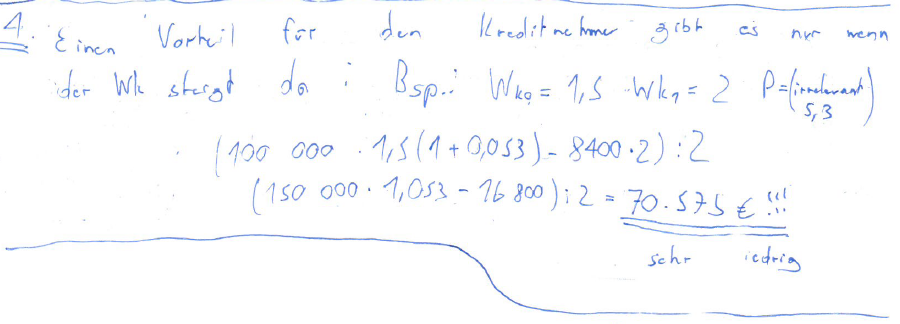 4. Einen Vorteil für den Kreditnehmer gibt es nur wenn
der Wk steigt da : Bsp.: Wk₀ = 1,5 Wk₁ = 2 P = (irrelevant)
5,3
(100 000 · 1,5(1 + 0,053) - 8400 · 2) : 2
(150 000 · 1,053 - 16 800) : 2 = 70.575 € !!!
sehr iedrig